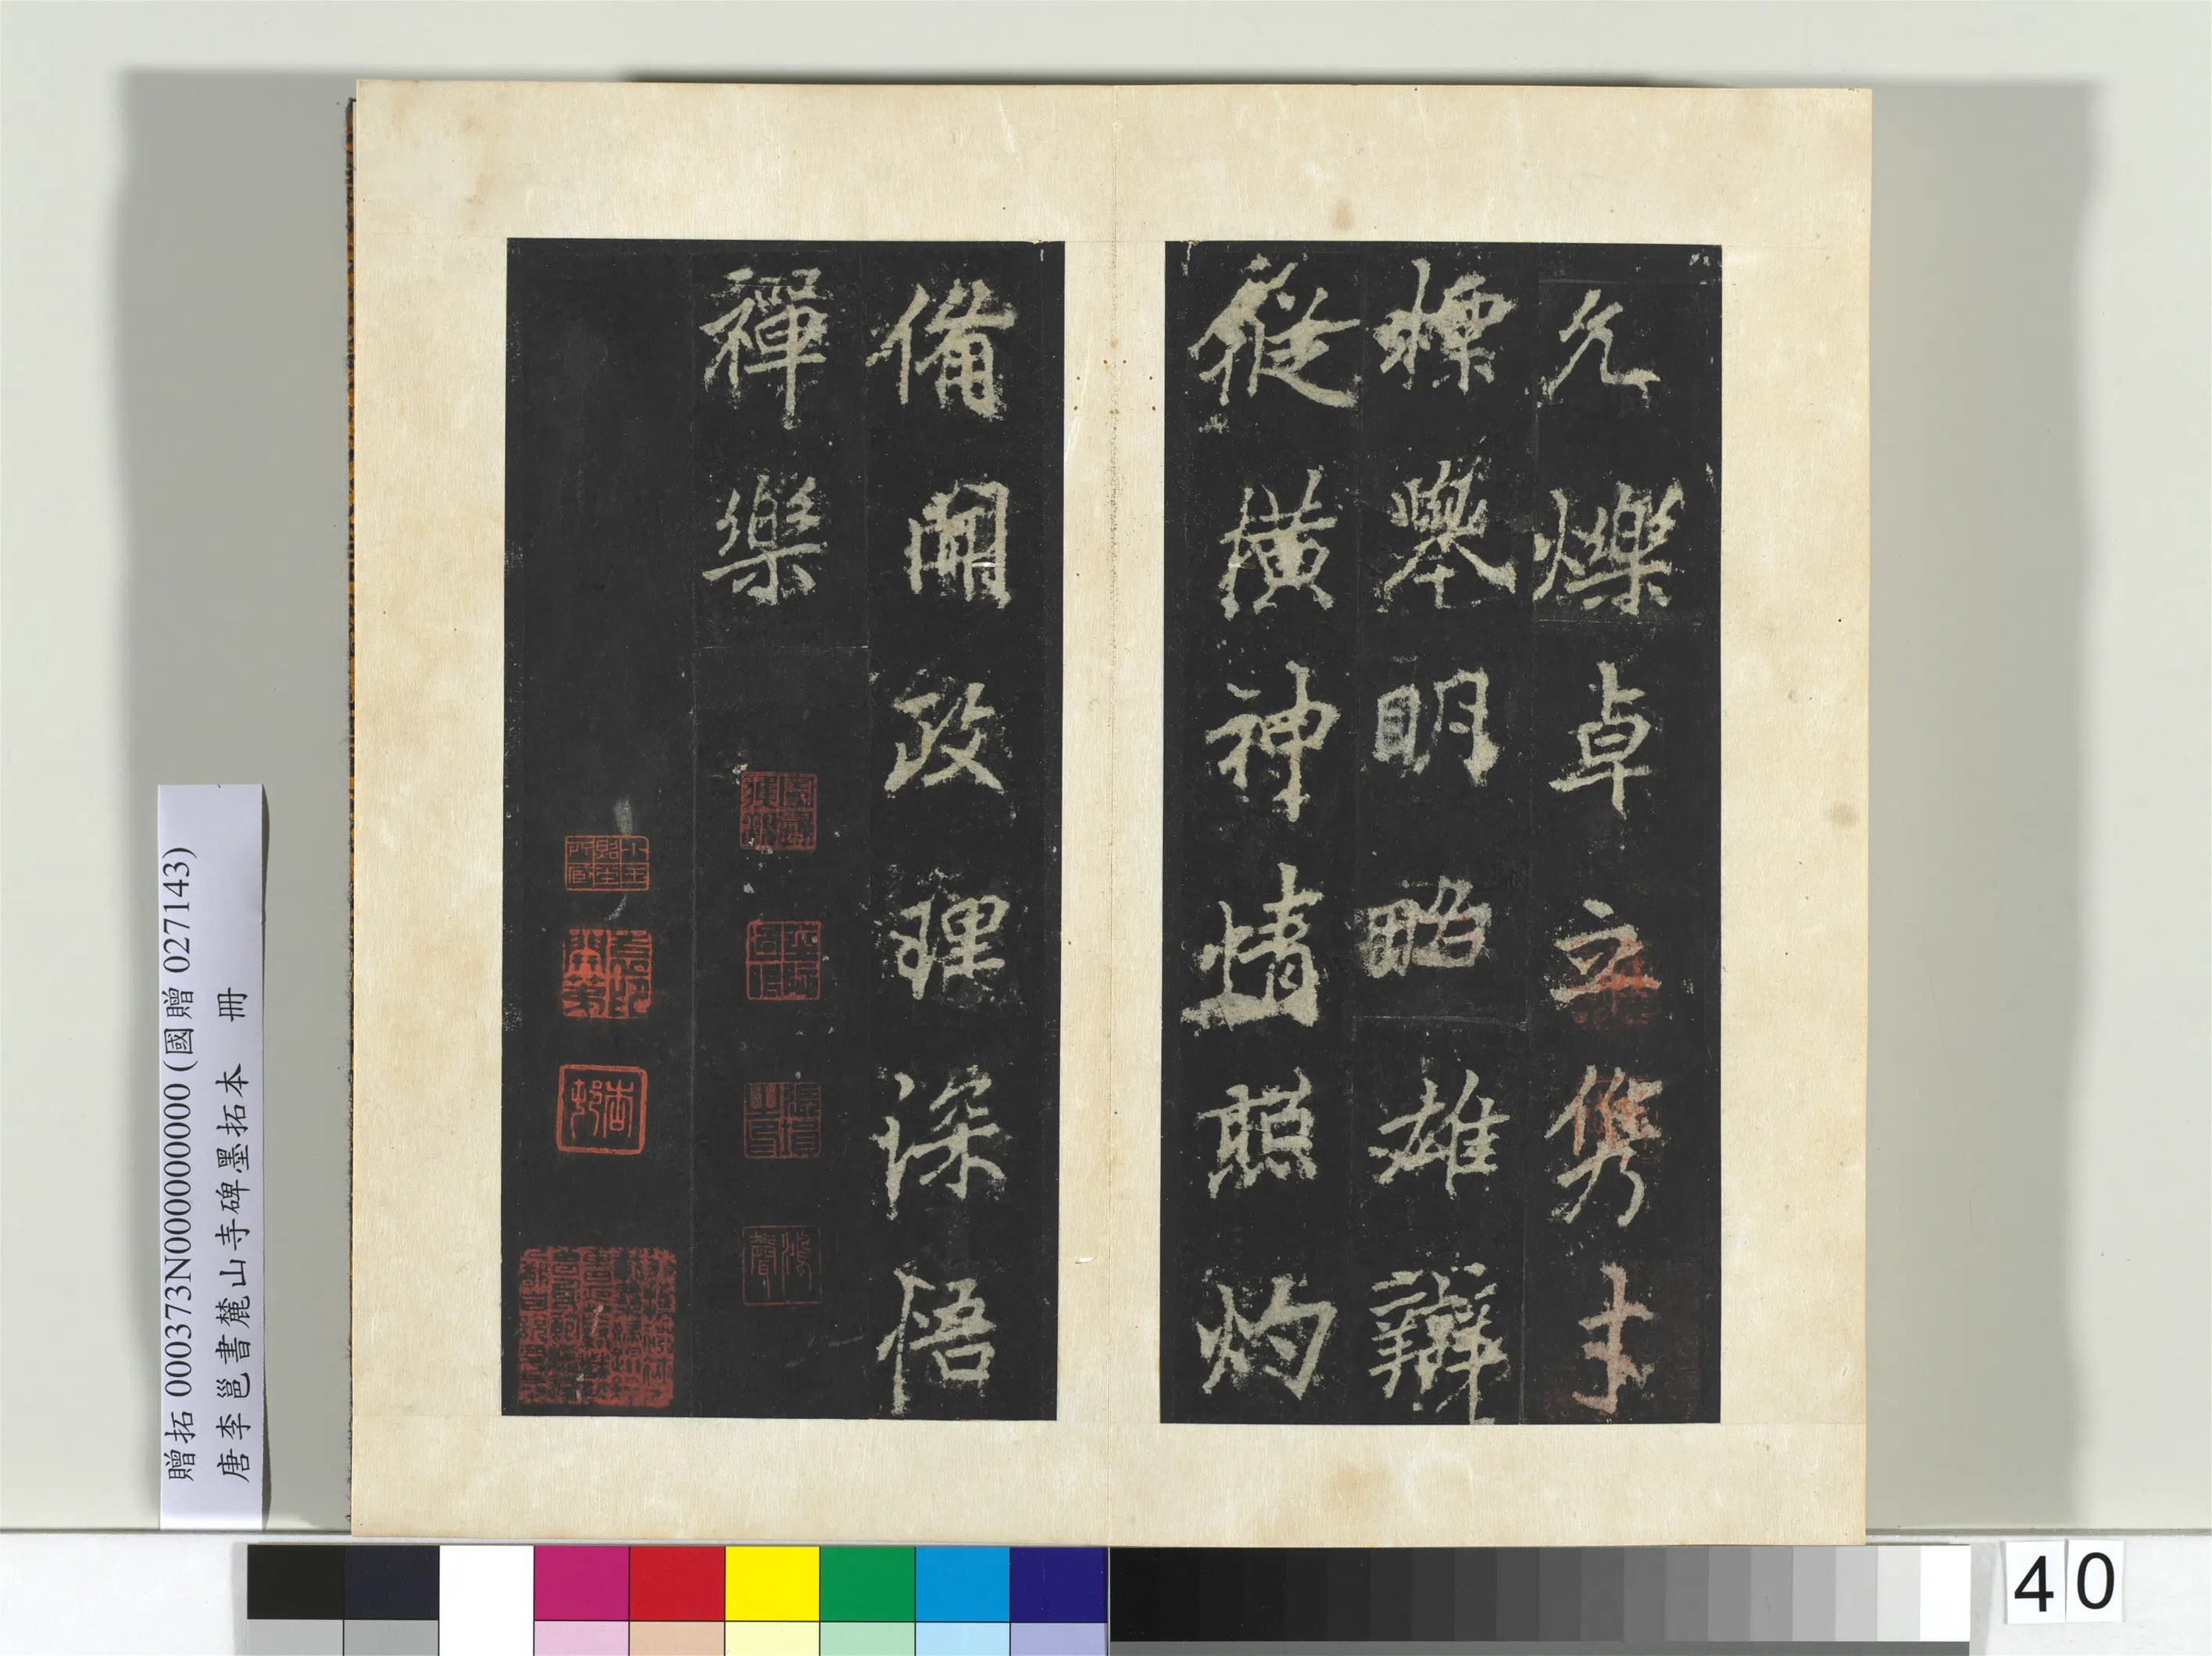 允爍卓立雋才
標舉明略雄辯
縱橫神情照灼
備聞政理深悟
禪樂
贈拓 000373N000000000 (國贈 027143)
唐李邕書麓山寺碑墨拓本 冊
40